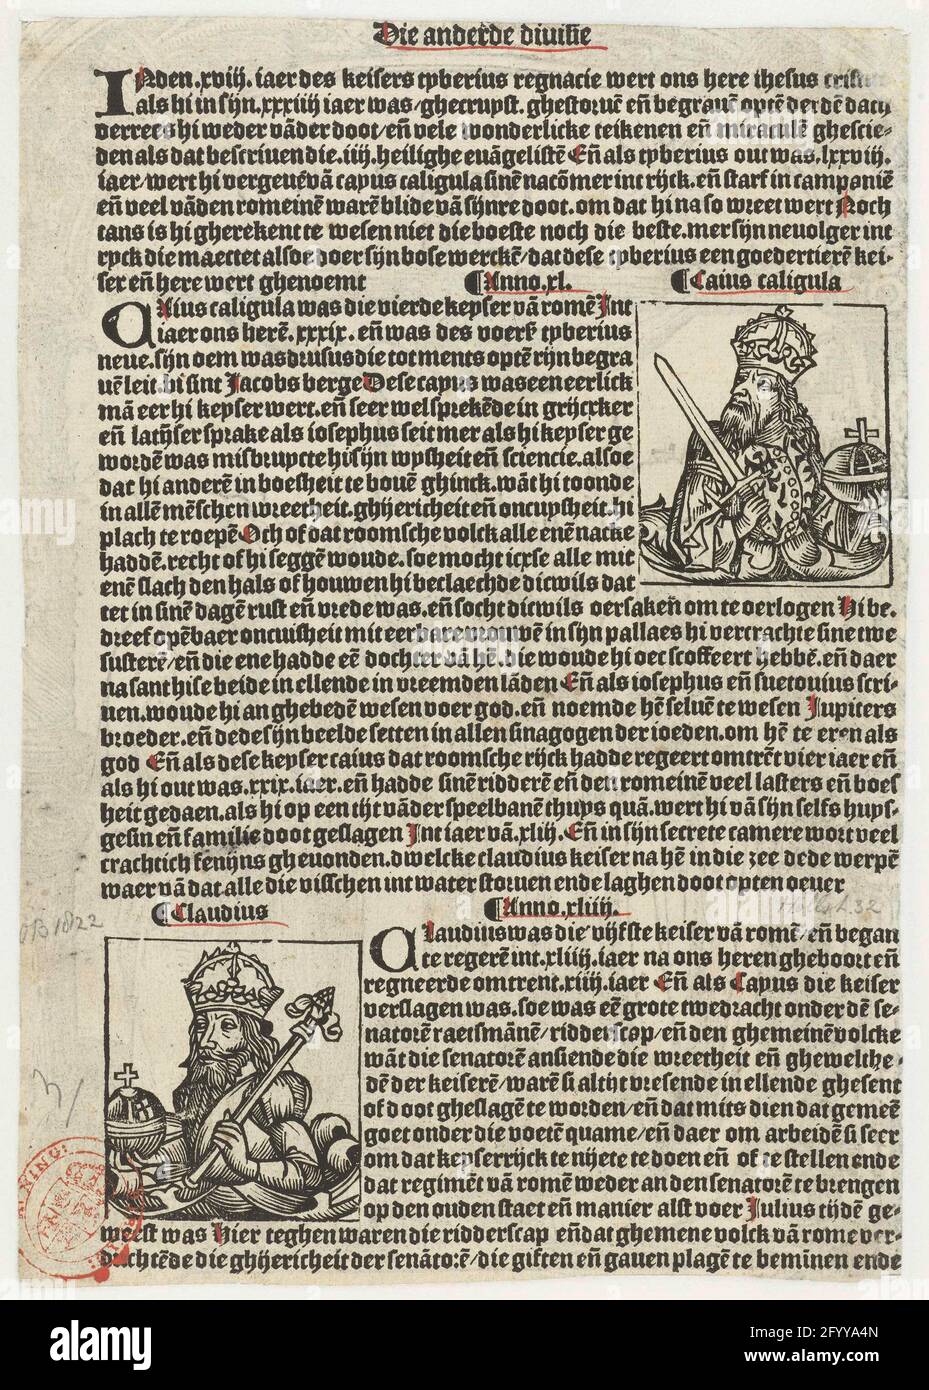 Die anderde diuisie
INden.xviij.iaer des keisers tyberius regnacie wert ons here ihesus
als hi in sijn.xxxiiij iaer was/ghecruyst.ghestoruē eñ begrauē optē derdē dach
verrees hi weder vāder doot/eñ vele wonderlicke teikenen eñ miraculē ghescie-
den als dat bescriuen die.iiij.heilighe euāgelistē Eñ als tyberius out was.lxxviij.
iaer/wert hi vergeuē vā cayus caligula sinē nacōmer int rijck.eñ starf in campaniē
eñ veel vāden romeinē warē blide vā sijnre doot.om dat hi na so wreet wert Noch
tans is hi gherekent te wesen niet die boeste noch die beste.mer sijn neuolger int
ryck die maectet alsoe doer sijn bose werckē/dat dese tyberius een goedertierē kei-
ser eñ here wert ghenoemt ¶Anno.xl. ¶Caius caligula
CAius caligula was die vierde keyser vā romē Int
iaer ons herē.xxxix.eñ was des voerē tyberius
neue.sijn oem was drusus die tot ments optē rijn begra
uē leit.bi sint Jacobs berge Dese cayus was een eerlick
mā eer hi keyser wert.eñ seer wel sprekēde in grijcxker
eñ latijser sprake als iosephus seit mer als hi keyser ge
wordē was misbruycte hi sijn wysheit eñ sciencie.alsoe
dat hi anderē in boesheit te bouē ghinck.wāt hi toonde
in allē mēschen wreetheit.ghijericheit eñ oncuysheit.hi
plach te roepē Och of dat roomsche volck alle enē nacke
haddē.recht of hi seggē woude.soe mocht icxse alle mit
enē slach den hals of houwen hi beclaechde dicwils dat
tet in sinē dagē rust eñ vrede was.eñ socht dicwils oersakeñ om te oerlogen Hi be.
dreef opēbaer oncuisheit mit eerbare vrouwē in sijn pallaes hi vercrachte sine twe
susterē/eñ die ene hadde eē dochter vā hē.die woude hi oec scoffeert hebbē.eñ daer
na sant hise beide in ellende in vreemden lāden Eñ als iosephus eñ suetonius scri-
uen.woude hi an ghebedē wesen voer god.eñ noemde hē seluē te wesen Jupiters
broeder.eñ dede sijn beelde setten in allen sinagogen der ioeden.om hē te eren als
god Eñ als dese keyser caius dat roomsche rijck hadde regeert omtrēt vier iaer eñ
als hi out was.xxix.iaer.eñ hadde sinē ridderē eñ den romeinē veel lasters eñ boes
heit gedaen.als hi op een tijt vāder speelbanē thuys quā.wert hi vā sijn selfs huys-
gesin eñ familie doot geslagen Int iaer vā.xliij.Eñ in sijn secrete camere wort veel
crachtich fenijns gheuonden.dwelcke claudius keiser na hē in die zee dede werpē
waer vā dat alle die visschen int water storuen ende laghen doot opten oeuer
¶Claudius ¶Anno.xliiij.
CLaudius was die vijfste keiser vā romē/eñ began
te regerē int.xliiij.iaer na ons heren gheboort eñ
regneerde omtrent.xiiij.iaer Eñ als Cayus die keiser
verslagen was.soe was eē grote twedracht onder dē se-
natorē raetsmānē/ridderscap/eñ den ghemeinē volcke
wāt die senatorē ansiende die wreetheit eñ ghewelthe-
dē der keiserē/warē si altijt vresende in ellende ghesent
of doot gheslagē te worden/eñ dat mits dien dat gemeē
goet onder die voetē quame/eñ daer om arbeidē si seer
om dat keyserrijck te nijete te doen eñ of te stellen ende
dat regimēt vā romē weder an den senatorē te brengen
op den ouden staet eñ manier alst voer Julius tijdē ge-
weest was Hier teghen waren die ridderscap eñ dat ghemene volck vā rome ver-
dachtēde die ghijericheit der senatorē/die giften eñ gauen plagē te beminen ende
OB 1822
alamy
Image ID: 2FYYA4N
www.alamy.com